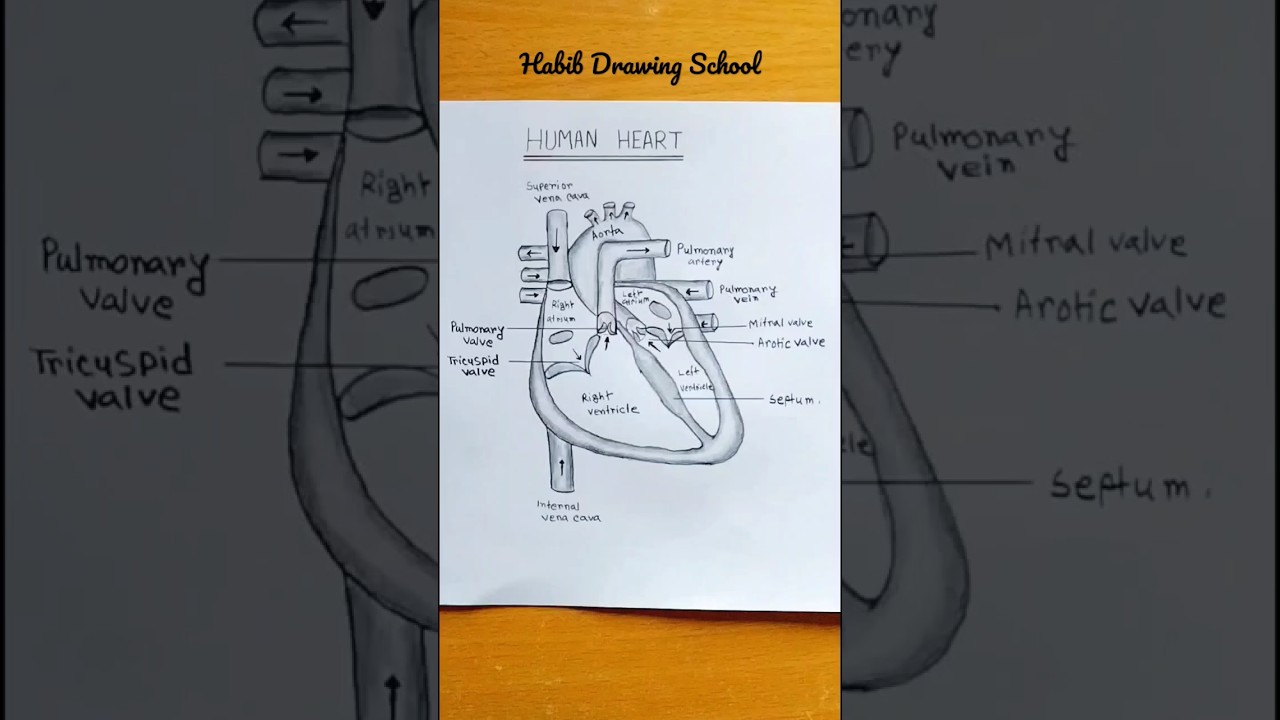 Habib Drawing School
HUMAN HEART
Superior
vena cava
Aorta
Pulmonary
artery
Pulmonary
vein
Left
atrium
Right
atrium
Pulmonary
valve
Mitral valve
Arotic valve
Tricuspid
valve
Left
ventricle
Right
ventricle
Septum.
Internal
vena cava
Right
atrium
Pulmonary
valve
Tricuspid
valve
onary
ery
Pulmonary
vein
Mitral valve
Arotic valve
cle
Septum.